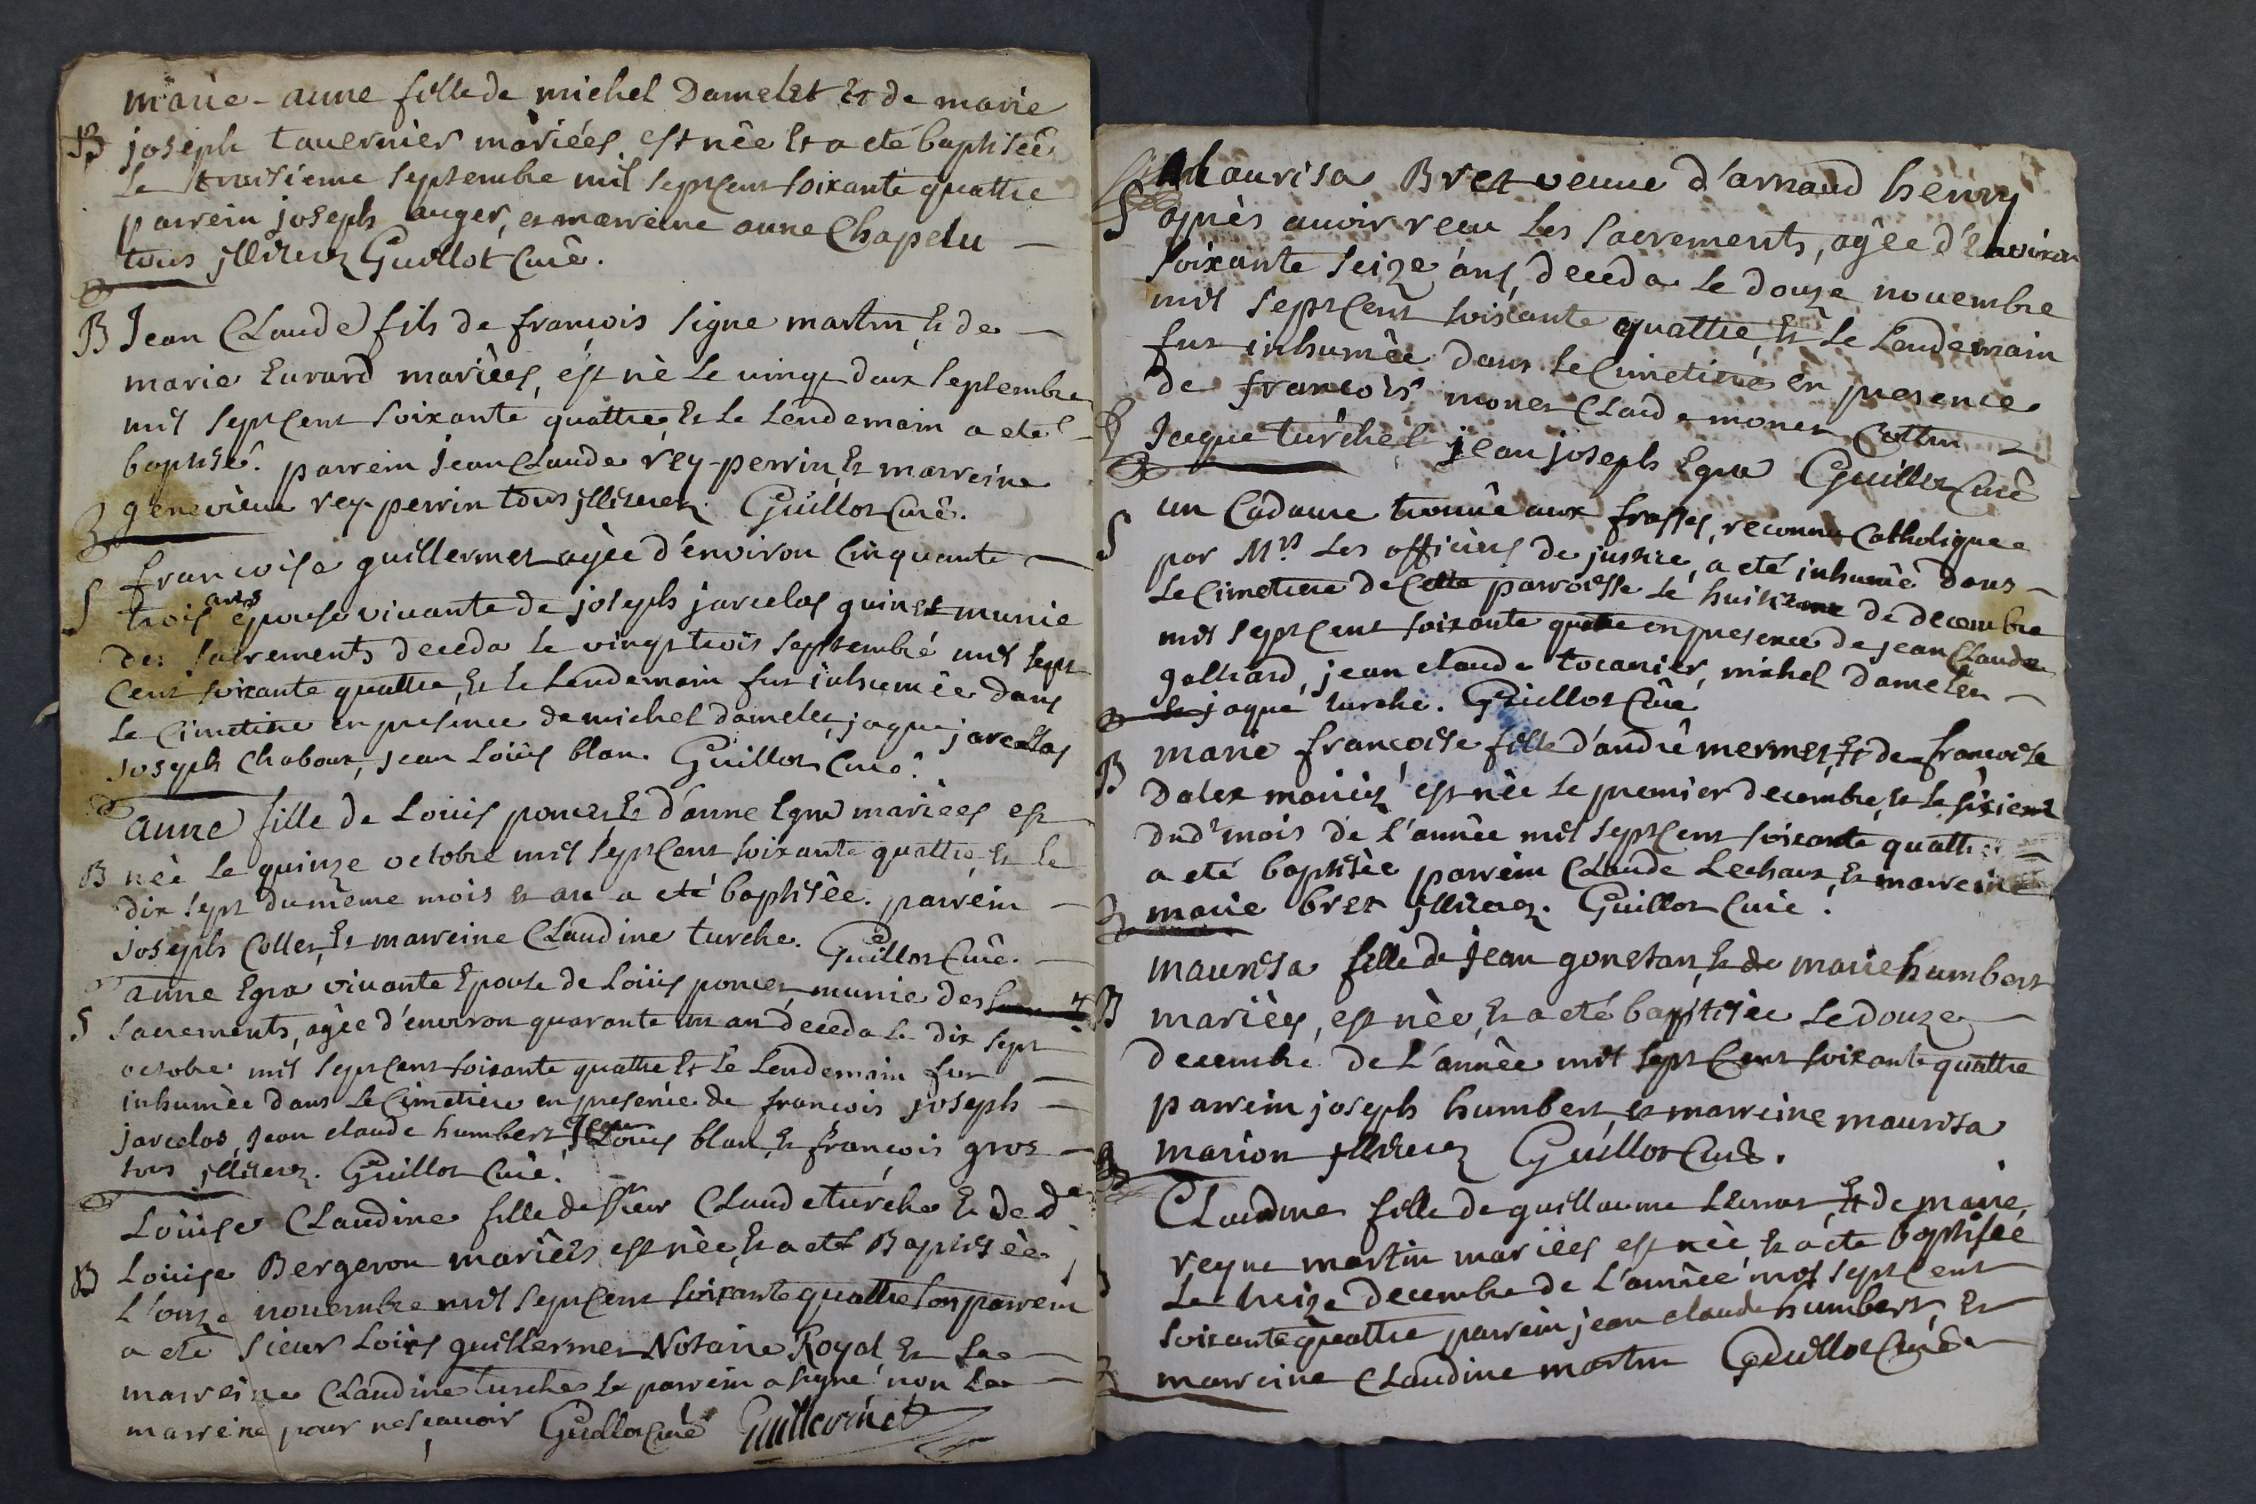 marie-anne fille de michel Damelet Et de marie
B joseph tavernier mariées est née Et a eté baptisée
Le troisieme septembre mil sept Cent soixante quattre
parrein joseph auger, et marreine anne Chapelu
tous illiterez Guillot Curé.
B Jean Claude fils de françois signe martin Et de
marie Evrard mariées, est nè Le vingt deux septembre
mil sept Cent soixante quattre Et Le Lendemain a eté
baptisé. parrein jean Claude rey-perrin Et marreine
genevieve rey-perrin tous illiterez. Guillot Curé.
françoise guillermet agée d'environ Cinquante
S trois ans epouse vivante de joseph jarcelas quinet munie
des sacrements deceda Le vingt trois septembre mil sept
Cent soixante quattre, Et Le Lendemain fut inhumée dans
Le Cimetiere en presence de michel damelet, jaque jarcelas
joseph Chaboux, jean Loüis blan. Guillot Curé.
anne fille de Loüis poncet Et d'anne Egra mariées est
B née Le quinze octobre mil sept Cent soixante quattre, Et Le
dix sept du même mois et an a eté baptisée. parrein
joseph Collet, Et marreine Claudine turche. Guillot Curé.
anne Egra vivante Epouse de Loüis poncet, munie des
S sacrements, agée d'environ quarante un an deceda Le dix sept
octobre mil sept Cent soixante quattre Et Le Lendemain fut
inhumée dans Le Cimetiere en presence de françois joseph
jarcelas, jean claude humbert, jean Loüis blan, Et françois gros
tous illiterez. Guillot Curé.
Loüise Claudine fille de sieur Claude turche Et de de
B Loüise Bergeron mariées est née, Et a eté Baptisée
L'onze novembre mil sept Cent soixante quattre son parrein
a eté sieur Loüis guillermet Notaire Royal Et La
marreine Claudine turche Le parrein a signé non La
marreine pour ne sçavoir Guillot Curé Guillermet
Maurisa Bret veuve d'arnaud henry
S après avoir reçu Les sacrements, agée d'Environ
soixante seize ans, deceda Le douze novembre
mil sept Cent soixante quattre, Et Le Lendemain
fut inhumée dans Le Cimetiere en presence
de françois monet Claude monet Cottin
Jaque turchet jean joseph Egra Guillot Curé
un Cadavre trouvé aux frasses, reconnu Catholique
S par Mrs Les officiers de justice, a eté inhumé dans
Le Cimetiere de Cette parroisse Le huitieme de decembre
mil sept Cent soixante quattre en presence de jean Claude
galliard, jean claude tocanier, michel damelet
jaque turche. Guillot Curé
B marie françoise fille d'andré mermet, Et de françoise
Dalex mariez est née Le premier decembre, Et Le sixieme
dud' mois de L'année mil sept Cent soixante quattre
a eté baptisée parrein Claude Lechaux, Et marreine
marie bret illiterez. Guillot Curé.
maurisa fille de jean gonetan, Et de marie humbert
B mariées, est née, Et a eté baptisée Le douze
decembre de L'année mil sept Cent soixante quattre
parrein joseph humbert, et marreine maurisa
marion illiterez Guillot Curé.
Claudine fille de guillaume Et de marie
reyne martin mariées est née Et a eté baptisée
Le treize decembre de L'année mil sept Cent
soixante quattre parrein jean claude humbert, Et
marreine Claudine martin Guillot Curé